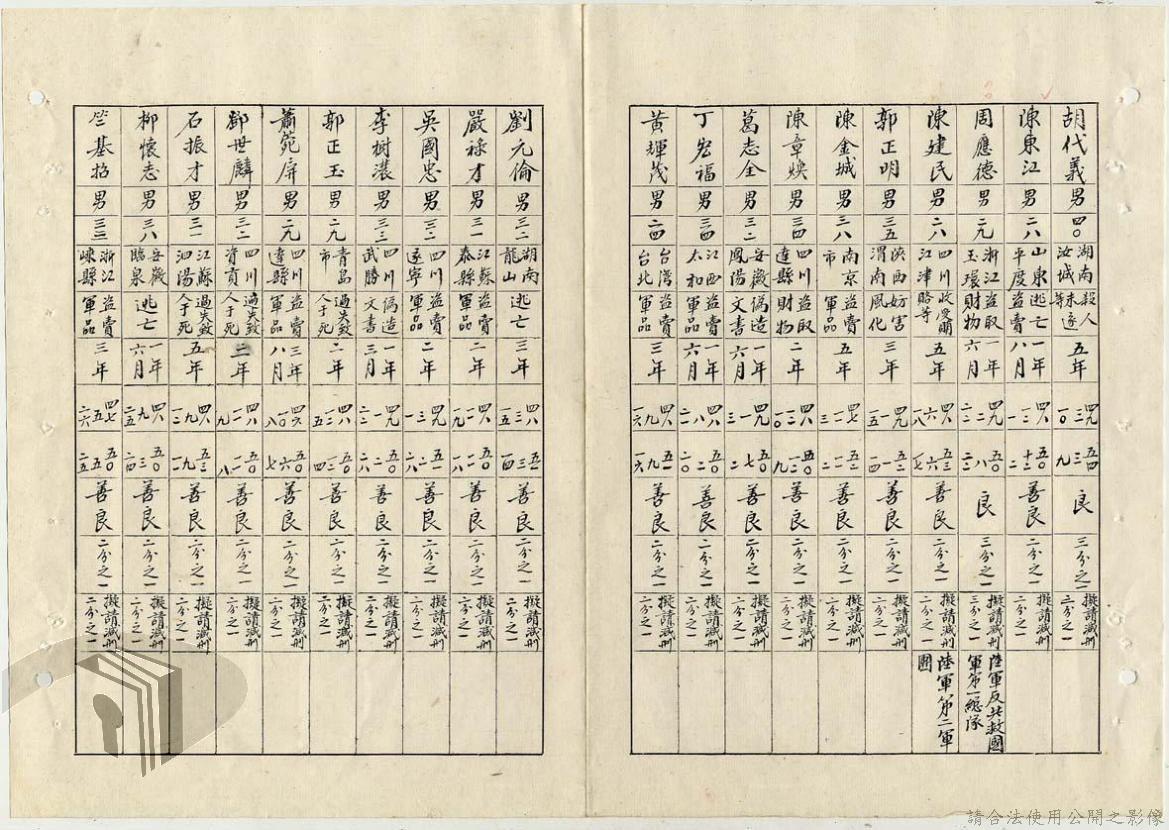 胡代義 男 四〇 湖南汝城 殺人未遂等 五年 四九 二 一〇 五四 三 九 良 三分之一 擬請減刑三分之一
陳東江 男 二八 山東平度 逃亡盜賣 一年八月 善良 二分之一 擬請減刑二分之一
周應德 男 二九 浙江玉環 盜取財物 一年六月 良 三分之一 擬請減刑三分之一 陸軍反共救國軍第一總隊
陳建民 男 二八 四川江津 收受賄賂等 五年 善良 二分之一 擬請減刑二分之一 陸軍第二軍團
郭正明 男 三五 陝西渭南 妨害風化 三年 善良 二分之一 擬請減刑二分之一
陳金城 男 三八 南京市 盜賣軍品 五年 善良 二分之一 擬請減刑二分之一
陳章煥 男 三四 四川達縣 盜取財物 二年 善良 二分之一 擬請減刑二分之一
葛志全 男 三二 安徽鳳陽 偽造文書 一年六月 善良 二分之一 擬請減刑二分之一
丁宏福 男 三四 江西太和 盜賣軍品 一年六月 善良 二分之一 擬請減刑二分之一
黃輝茂 男 二四 台灣台北 盜賣軍品 三年 四八 九 一六 五一 九 一六 善良 二分之一 擬請減刑二分之一
劉元倫 男 三二 湖南龍山 逃亡 三年 四八 三 一五 五一 三 一四 善良 二分之一 擬請減刑二分之一
嚴祿才 男 三一 江蘇泰縣 盜賣軍品 二年 善良 二分之一 擬請減刑二分之一
吳國忠 男 三二 四川遂寧 盜賣軍品 二年 善良 二分之一 擬請減刑二分之一
李樹濃 男 三三 四川武勝 偽造文書 一年三月 善良 二分之一 擬請減刑二分之一
郭正玉 男 二九 青島市 過失致人于死 二年 善良 二分之一 擬請減刑二分之一
蕭範屏 男 二九 四川達縣 盜賣軍品 三年八月 善良 二分之一 擬請減刑二分之一
鄧世麟 男 三二 四川資貢 過失致人于死 二年 善良 二分之一 擬請減刑二分之一
石振才 男 三一 江蘇泗陽 過失致人于死 五年 善良 二分之一 擬請減刑二分之一
柳懷志 男 三八 安徽臨泉 逃亡 一年六月 四八 九 二五 五〇 三 二四 善良 二分之一 擬請減刑二分之一
竺基招 男 三三 浙江嵊縣 盜賣軍品 三年 四七 五 二六 五〇 五 二五 善良 二分之一 擬請減刑二分之一
請合法使用公開之影像